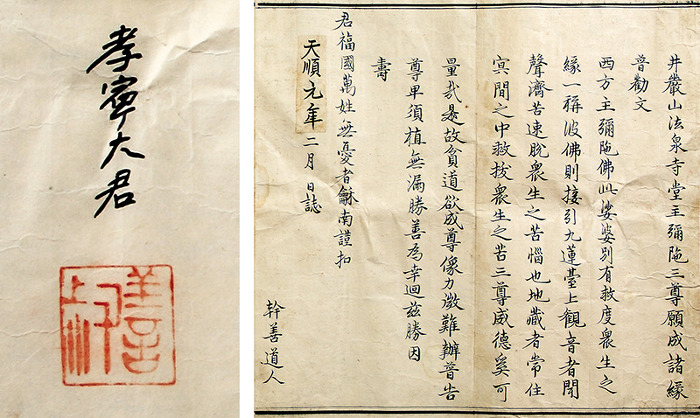 孝寧大君
井巖山法泉寺堂主彌陁三尊願成諸緣
普勸文
西方主彌陁佛此娑婆別有救度衆生之
緣一稱彼佛則接引九蓮臺上觀音者聞
聲濟苦速脫衆生之苦惱也地藏者常住
冥間之中救拔衆生之苦三尊威德奚可
量哉是故貧道欲成尊像力微難辦普告
尊卑須植無漏勝善為幸廻茲勝因
壽
君福國萬姓無憂者龢南謹扣
天順元年二月 日誌
幹善道人